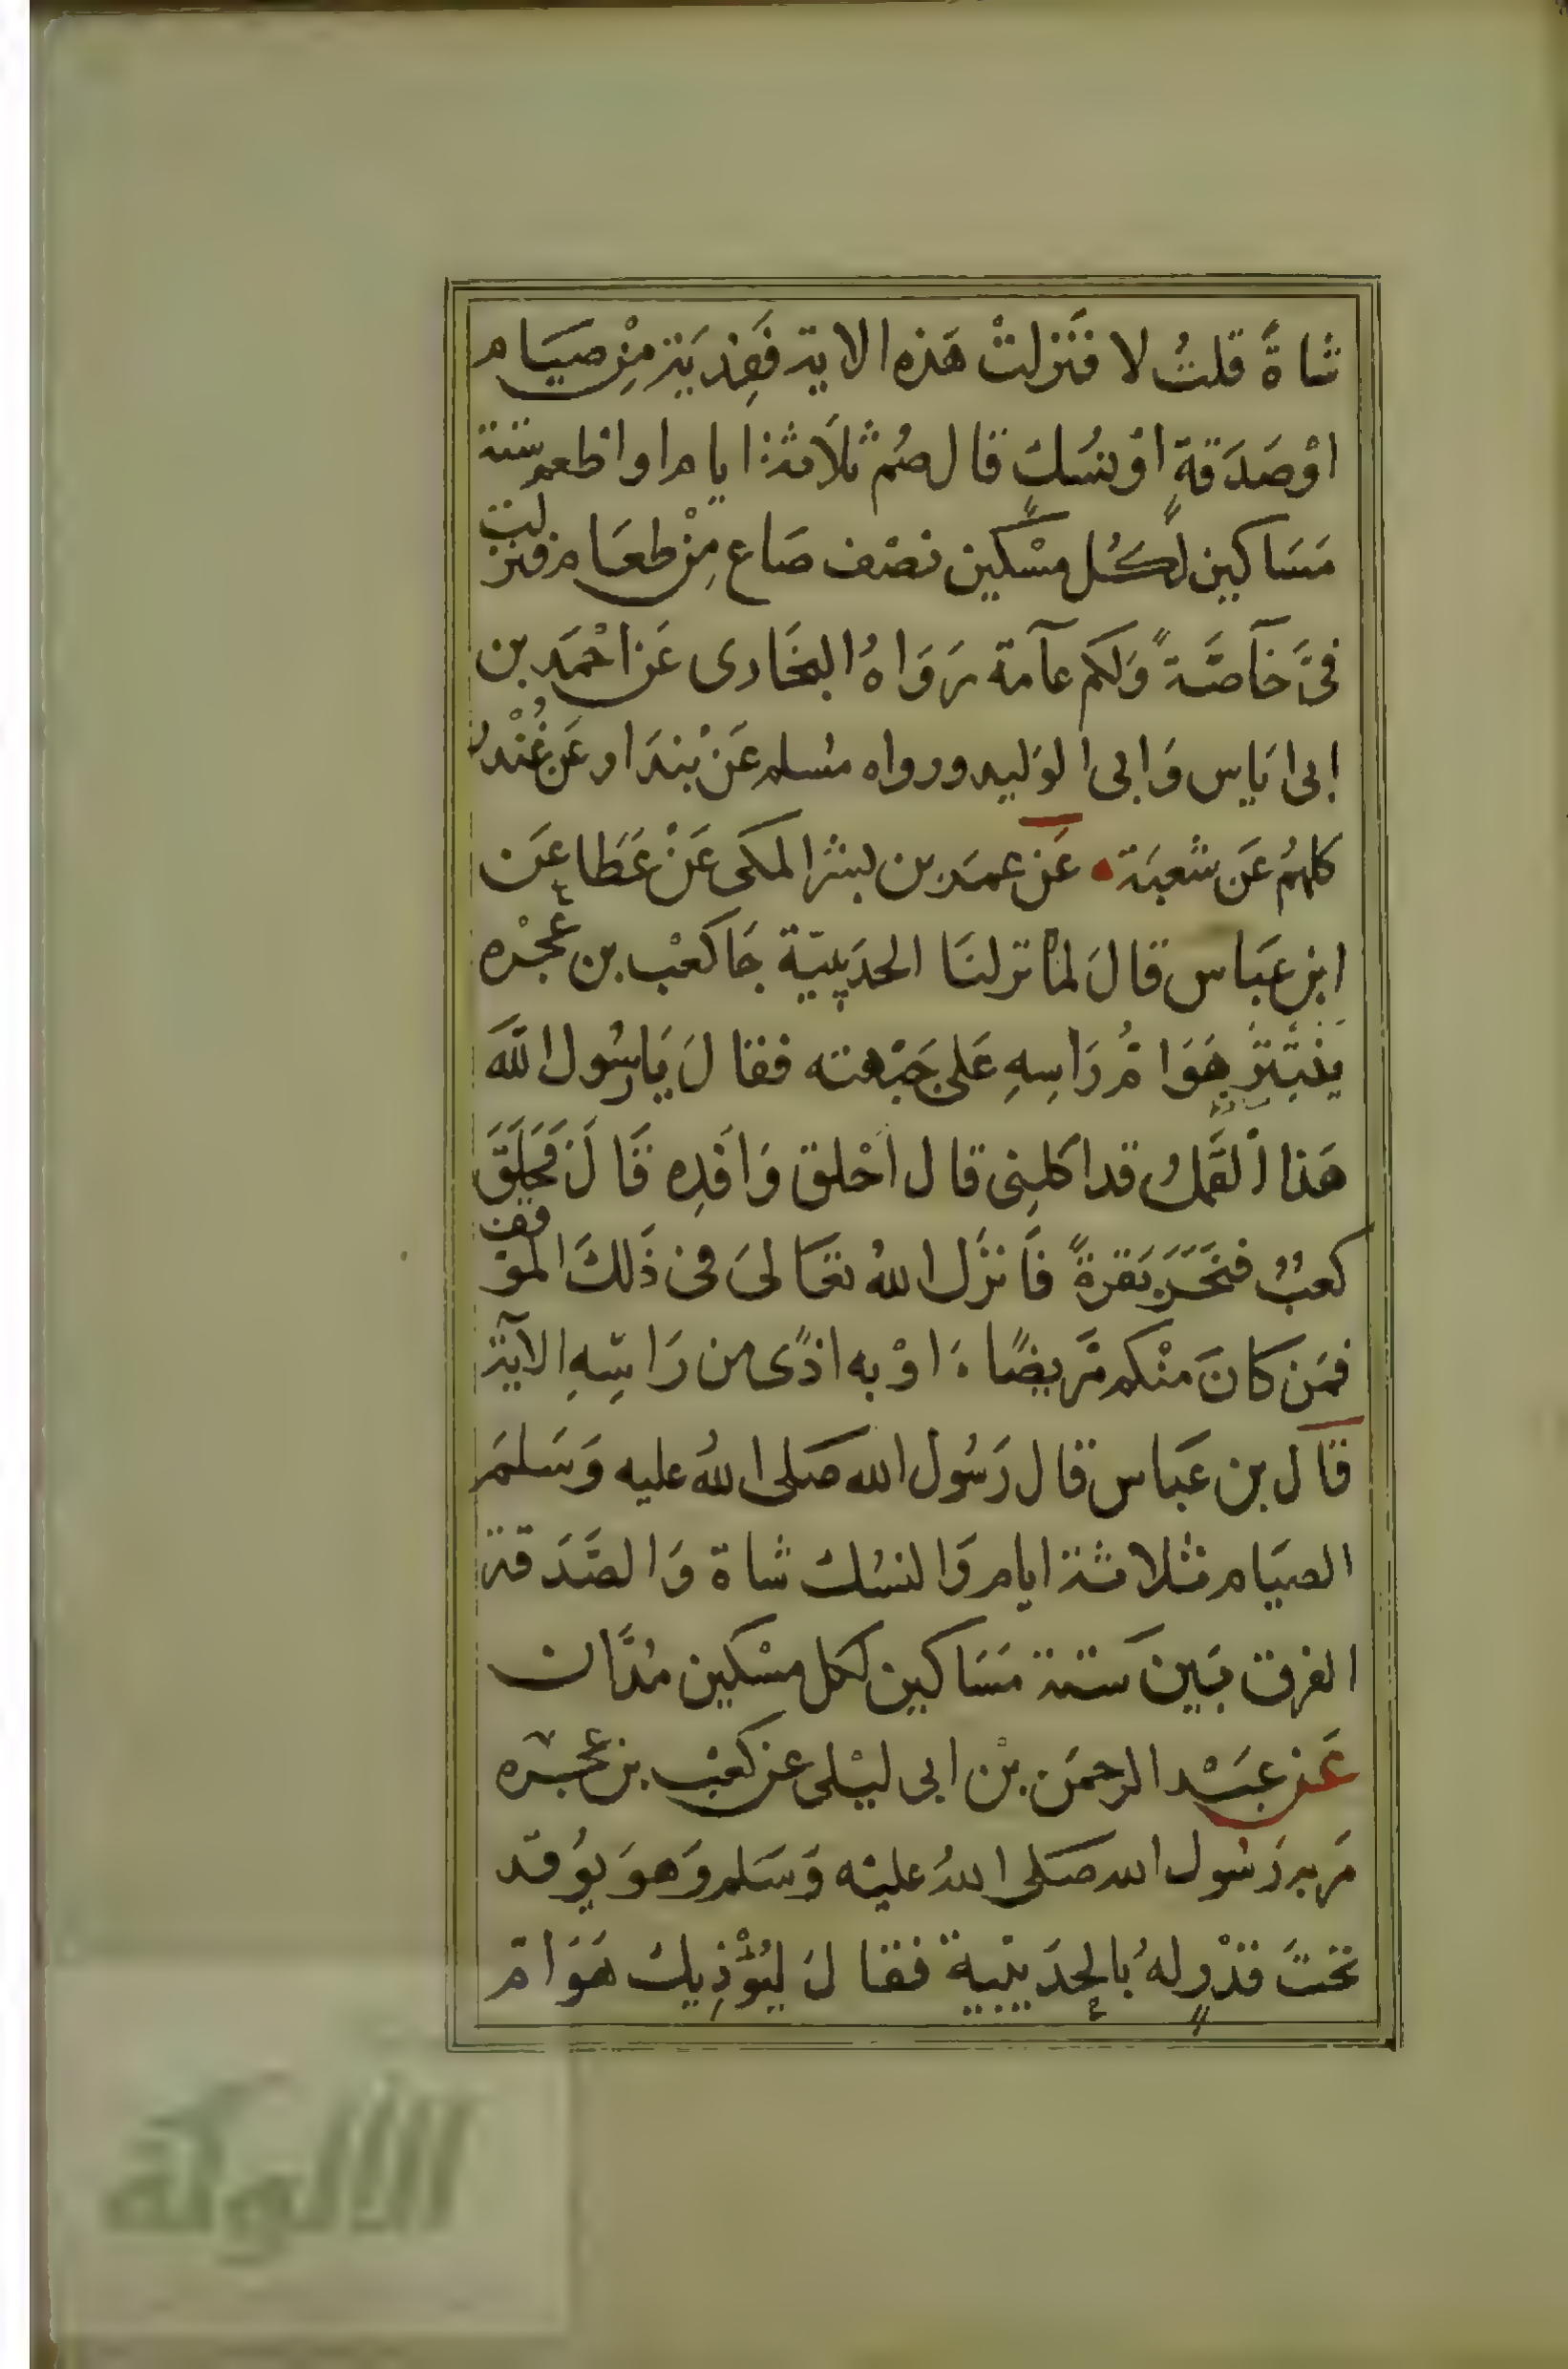 شاةً قلتُ لا فنزلتْ هَذه الاية فَفِذيَة مِنْ صيَام
اوْ صَدَقةٍ اوْ نسُكٍ قال صُم ثلاَثة ايام او اطعم ستة
مَسَاكين لكُل مسْكين نصْف صَاع مِنْ طعَام فنزلت
فىَّ خآصَّةً وَلكم عآمة رَوَاهُ البخَارى عَن احْمَد بن
ابى اياس وَابى الوَليد ورواه مسُلم عَنْ بُندَار عَن غُنْدر
كلهُم عَن شعبَة عَن عمَر بن بشر المكى عَنْ عَطا عَن
ابن عَباس قالَ لما نزلنَا الحدَيبيّة جَا كعْب بن عجْره
ينثتر هَوَامُّ رَاسِهِ عَلى جَبْهته فقالَ يَا رسُول اللَّه
هَذا القَملُ قد اكلنِى قال احْلق وَافدِه قَالَ فَحَلَقَ
كعبٌ فنحَرَ بَقرةً فَانزَل اللهُ تعَالىَ فى ذَلكَ الموْقف
فمَن كانَ منْكم مَّريضًا اوْ به اذًى من رَاسِهِ الآيَة
قال بن عَباس قال رَسُول الله صَلى اللهُ عليه وَسَلمَ
الصيَام ثلاثة ايام وَالنسُك شاة وَالصَّدَقة
الفرق بَين ستة مَسَاكين لكل مسْكين مُدَّان
عَن عبَدْ الرحمَن بْن ابى ليْلى عن كعْب بن عجْره
مَر به رَسُول الله صَلى اللهُ عليْه وَسَلم وَهوَ يوُقد
تحتَ قدْرٍ لهُ بالحِدَيبْية فقالَ ليُؤْذِيك هَوَامّ
الألوكة